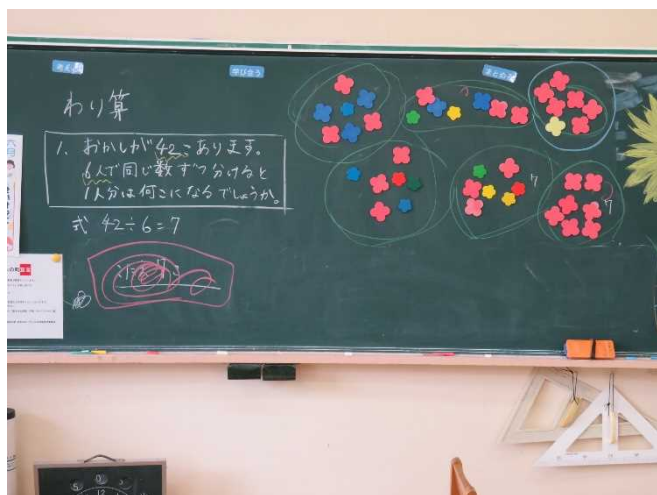 学び合う
まとめる
わり算
1. おかしが42こあります。
6人で同じ数ずつ分けると
1人分は何こになるでしょうか。
式 42÷6=7
7
7
12